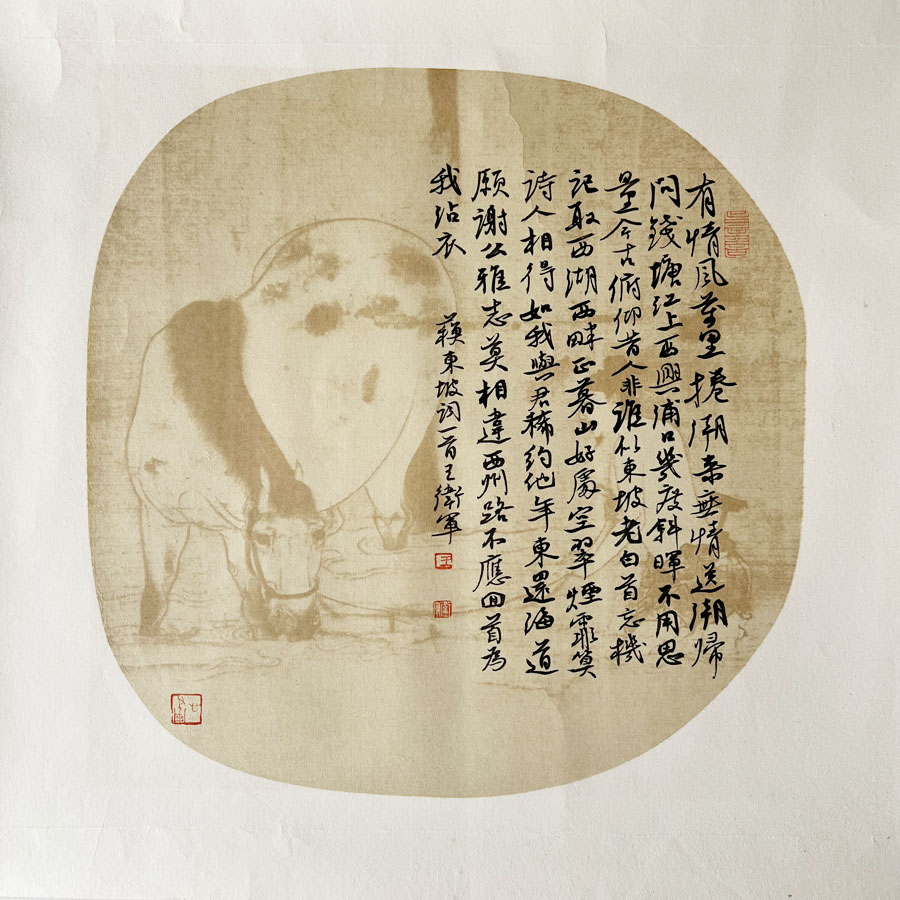 有情風萬里捲潮來無情送潮歸
問錢塘江上西興浦口幾度斜暉不用思
量今古俯仰昔人非誰似東坡老白首忘機
記取西湖西畔正暮山好處空翠煙霏算
詩人相得如我與君稀約他年東還海道
願謝公雅志莫相違西州路不應囬首為
我沾衣
蘓東坡詞一首王衛軍
王